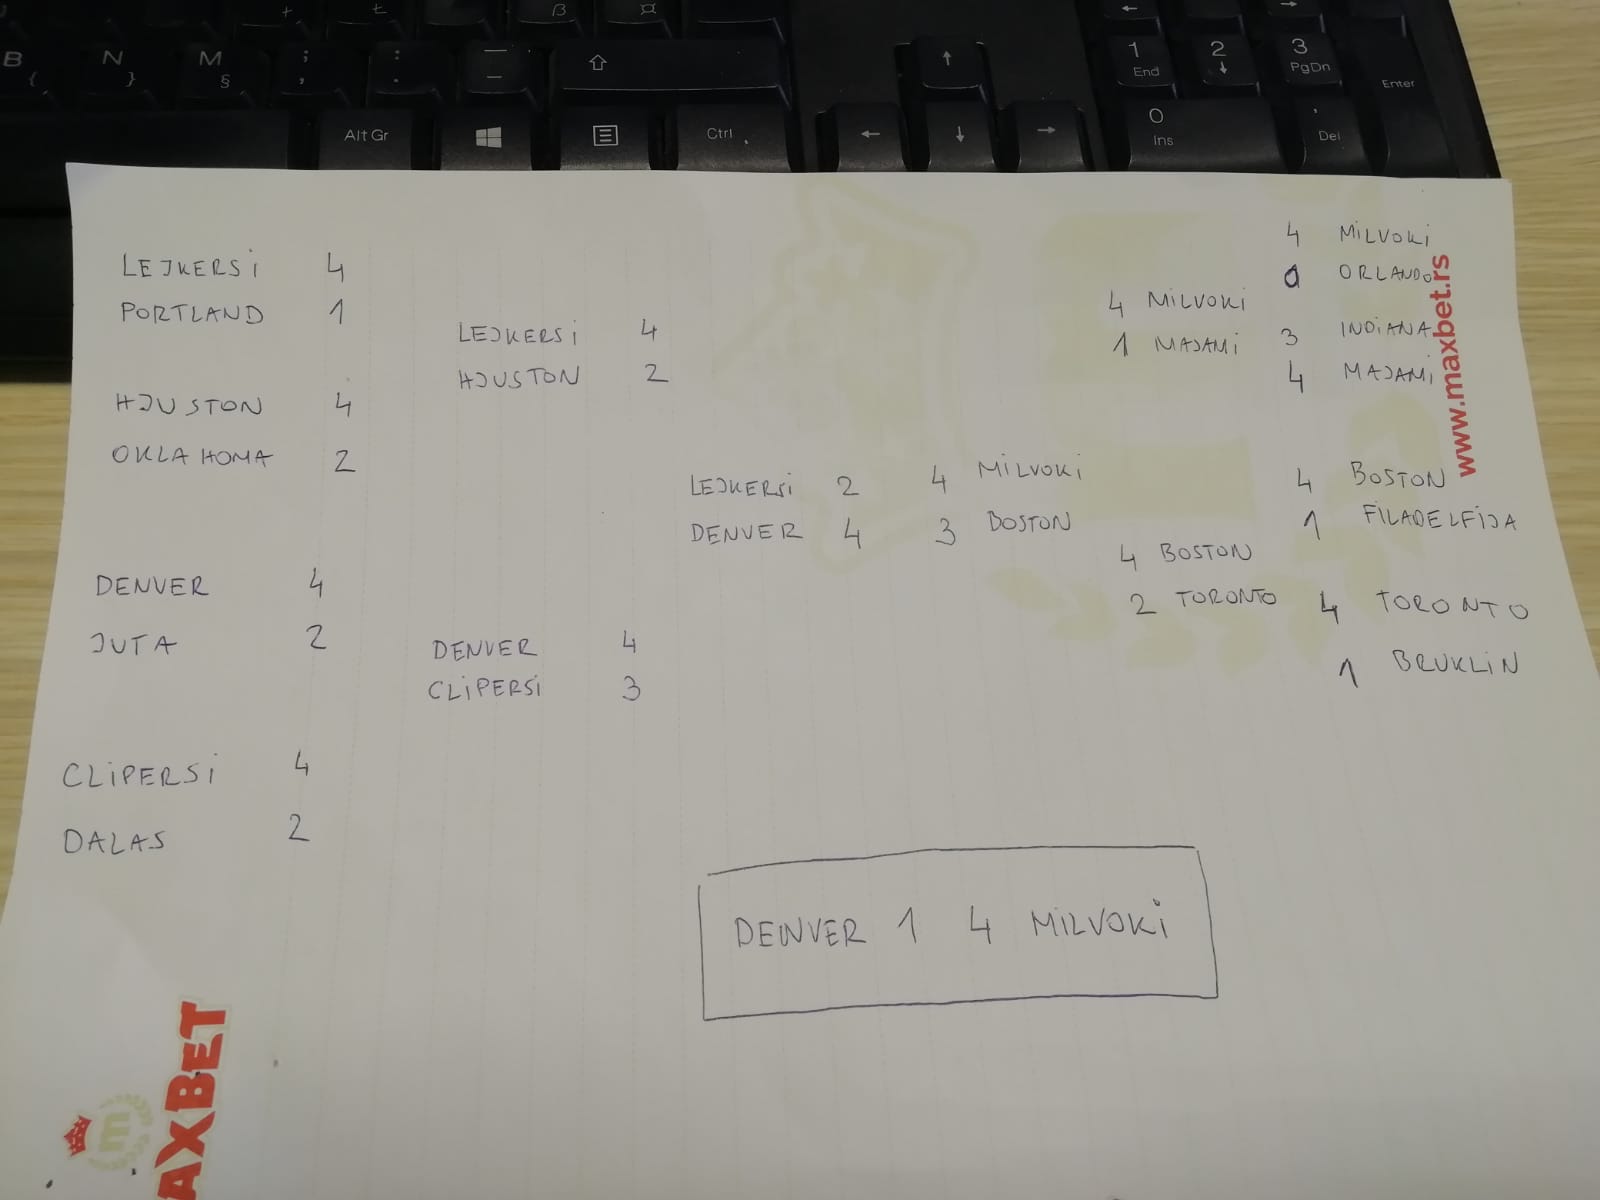 ß
B {
N }
M §
; ,
: .
_ -
Alt Gr
Ctrl
1 End
2
3 PgDn
Enter
0 Ins
, Del
LEJKERSI 4
PORTLAND 1
HJUSTON 4
OKLAHOMA 2
DENVER 4
JUTA 2
CLIPERSI 4
DALAS 2
LEJKERSI 4
HJUSTON 2
DENVER 4
CLIPERSI 3
LEJKERSI 2
DENVER 4
4 MILVOKI
3 BOSTON
4 MILVOKI
1 MAJAMI
4 BOSTON
2 TORONTO
4 MILVOKI
0 ORLANDO
3 INDIANA
4 MAJAMI
4 BOSTON
1 FILADELFIJA
4 TORONTO
1 BRUKLIN
DENVER 1 4 MILVOKI
www.maxbet.rs
m
AXBET